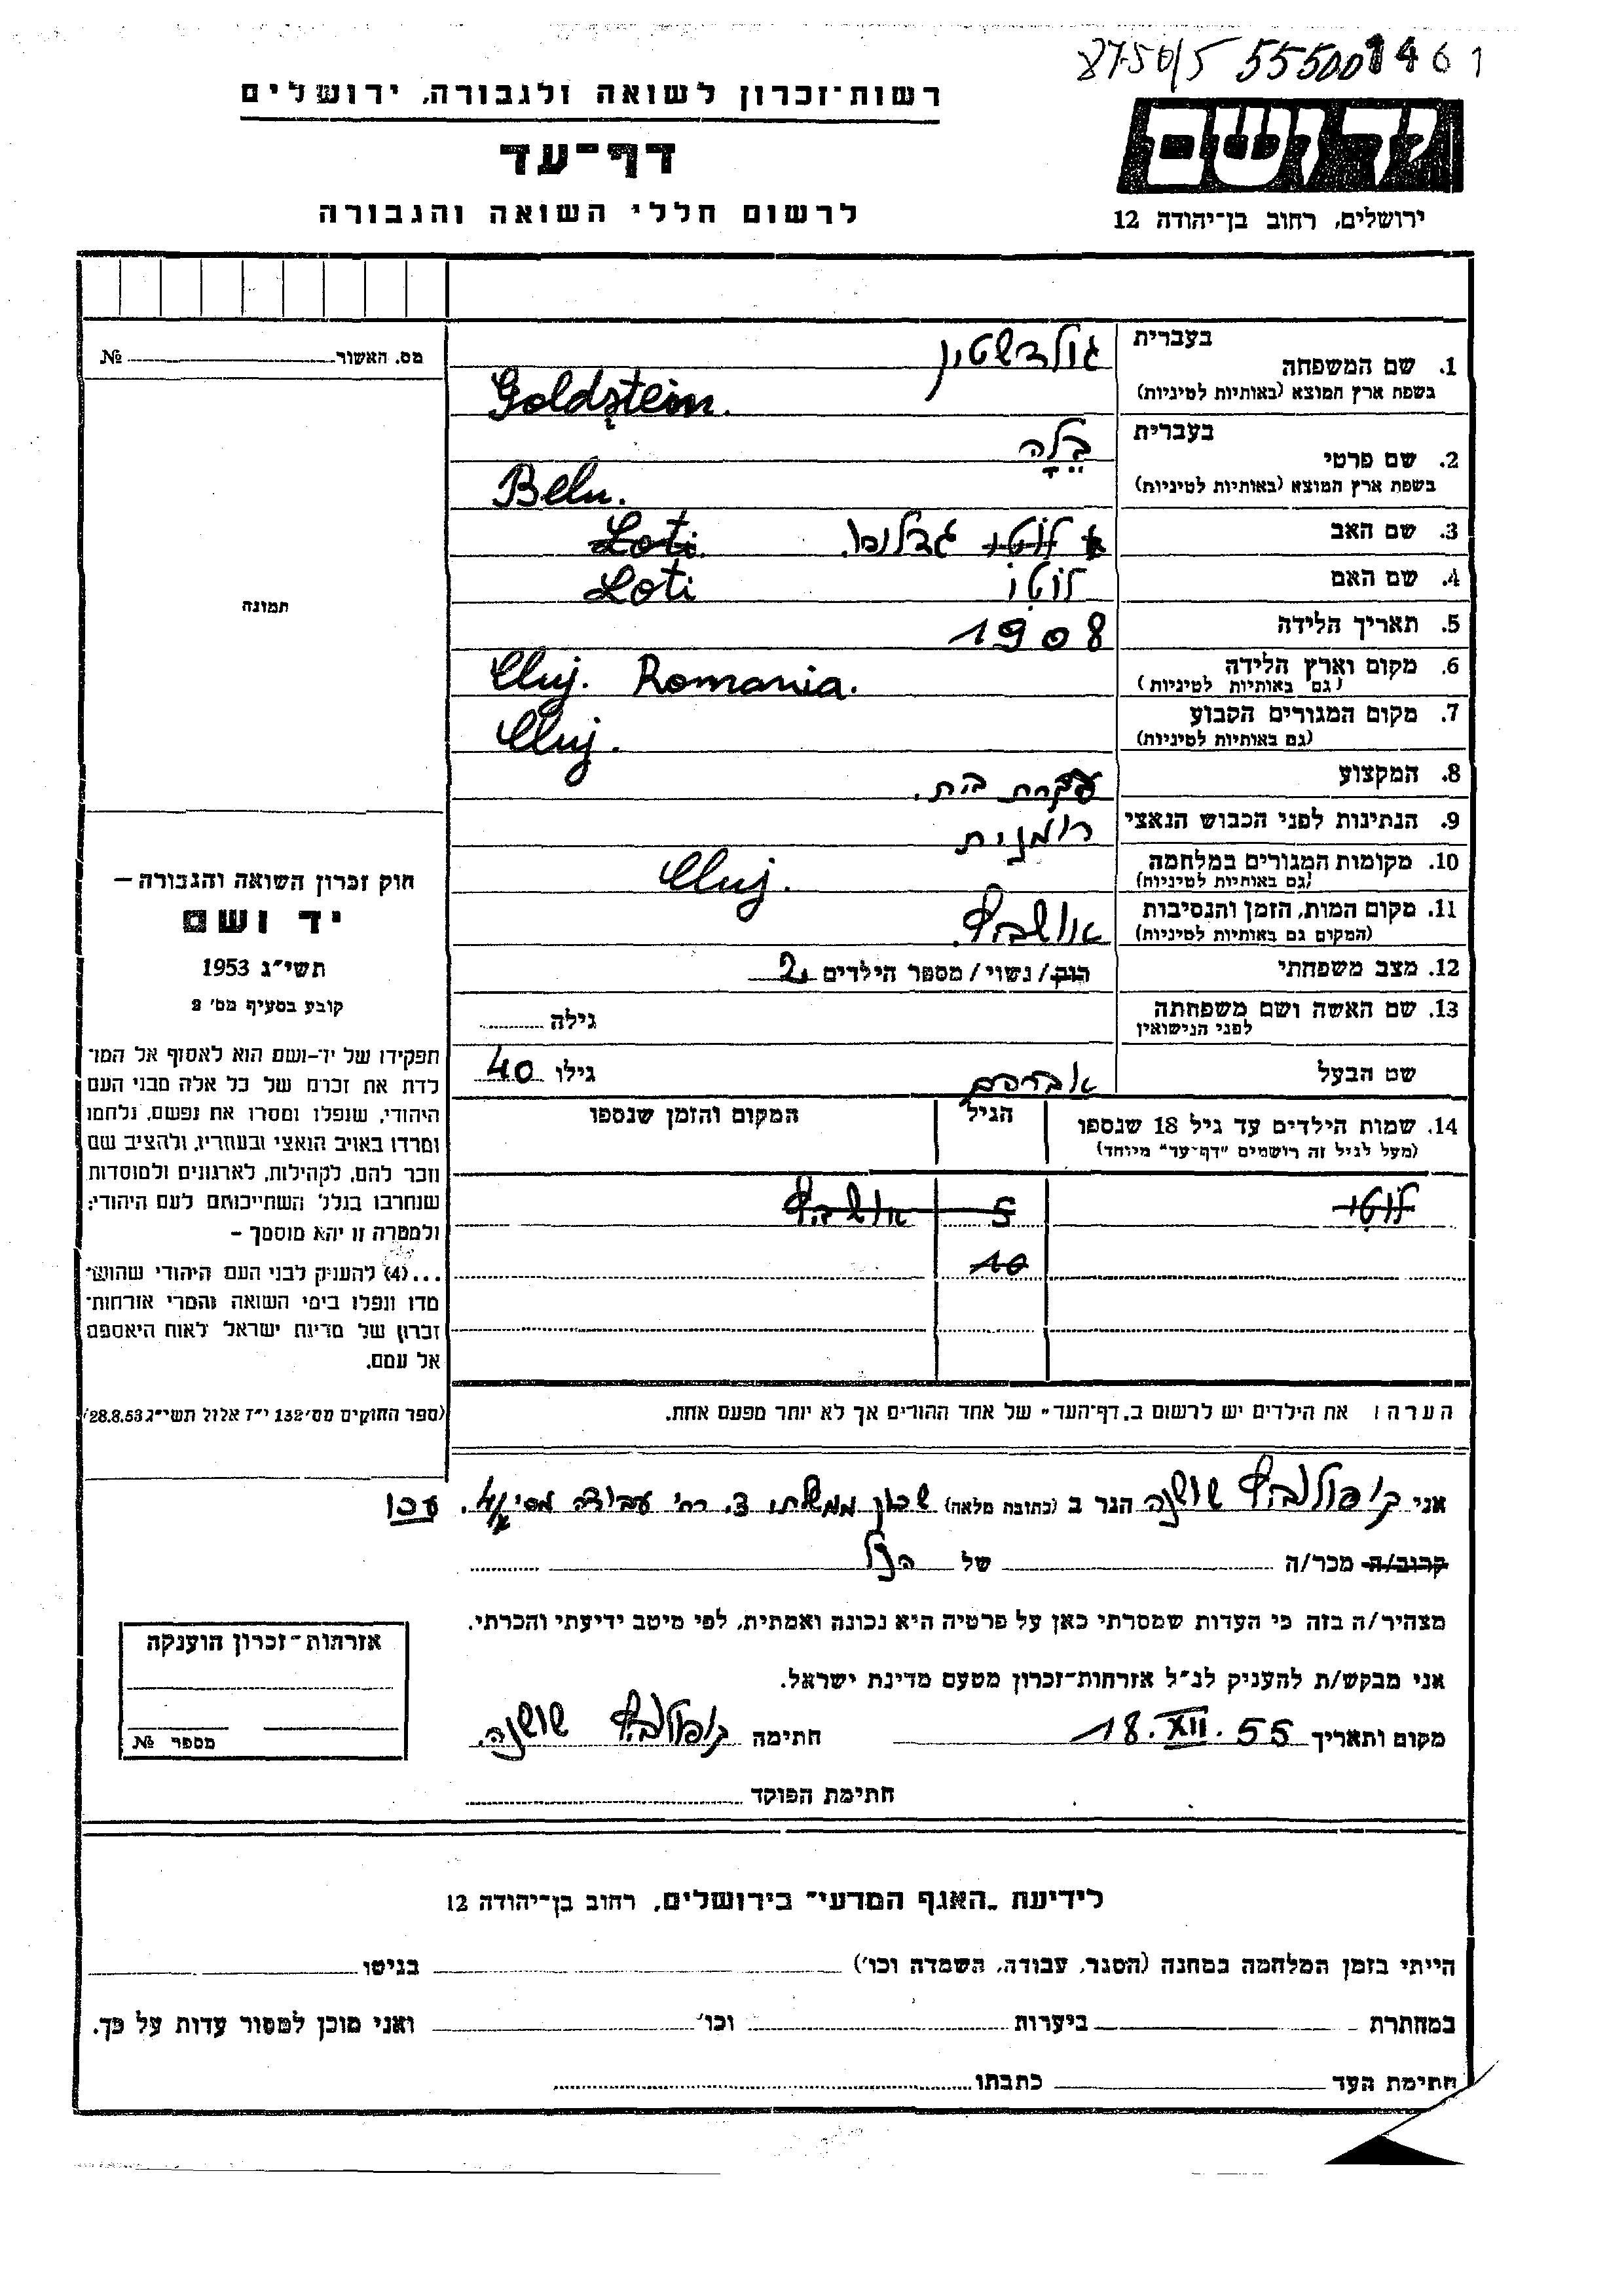 87-50/5 55500 1461
רשות־זכרון לשואה ולגבורה, ירושלים
דף־עד
לרשום חללי השואה והגבורה
יד ושם
ירושלים, רחוב בן־יהודה 12
מס. האשור № 
1. שם המשפחה בעברית גולדשטין
בשפת ארץ המוצא (באותיות לטיניות) Goldstein.
2. שם פרטי בעברית בלה
בשפת ארץ המוצא (באותיות לטיניות) Belu.
3. שם האב לוטי Loti.
4. שם האם לוטי Loti
5. תאריך הלידה 1908
6. מקום וארץ הלידה
(גם באותיות לטיניות) Cluj. Romania.
7. מקום המגורים הקבוע
(גם באותיות לטיניות) Cluj.
8. המקצוע עקרת בית.
9. הנתינות לפני הכבוש הנאצי רומנית
10. מקומות המגורים במלחמה
(גם באותיות לטיניות) Cluj.
11. מקום המות, הזמן והנסיבות
(המקום גם באותיות לטיניות) אושביץ.
12. מצב משפחתי רווק/נשוי/מספר הילדים 2
13. שם האשה ושם משפחתה
לפני הנישואין גילה
שם הבעל אברהם גילו 40
14. שמות הילדים עד גיל 18 שנספו הגיל המקום והזמן שנספו
(מעל לגיל זה רושמים "דף־עד" מיוחד)
לוטי 5 אושביץ
10
הערה: את הילדים יש לרשום ב„דף־העד" של אחד ההורים אך לא יותר מפעם אחת.
תמונה
חוק זכרון השואה והגבורה —
יד ושם
תשי"ג 1953
קובע בסעיף מס' 2
תפקידו של יד-ושם הוא לאסוף אל המו־
לדת את זכרם של כל אלה מבני העם
היהודי, שנפלו ומסרו את נפשם, נלחמו
ומרדו באויב הנאצי ובעוזריו, ולהציב שם
וזכר להם, לקהילות, לארגונים ולמוסדות
שנחרבו בגלל השתייכותם לעם היהודי;
ולמטרה זו יהא מוסמך -
...(4) להעניק לבני העם היהודי שהוש־
מדו ונפלו בימי השואה והמרי אזרחות־
זכרון של מדינת ישראל לאות היאספם
אל עמם.
(ספר החוקים מס' 132 י"ז אלול תשי"ג 28.8.53)
אני שושנה הגר ב (כתובת מלאה) שכון ממשלתי 3. רח' עבודה מס' עכו
קרוב/ה מכר/ה של הנ"ל
מצהיר/ה בזה כי העדות שמסרתי כאן על פרטיה היא נכונה ואמתית, לפי מיטב ידיעתי והכרתי.
אני מבקש/ת להעניק לנ"ל אזרחות־זכרון מטעם מדינת ישראל.
מקום ותאריך 18.XII.55 חתימה שושנה.
חתימת הפוקד
אזרחות־זכרון הוענקה
מספר №
לידיעת „האגף המדעי" בירושלים, רחוב בן־יהודה 12
הייתי בזמן המלחמה במחנה (הסגר, עבודה, השמדה וכו') בגיטו
במחתרת ביערות וכו' ואני מוכן למסור עדות על כך.
חתימת העד כתבתו